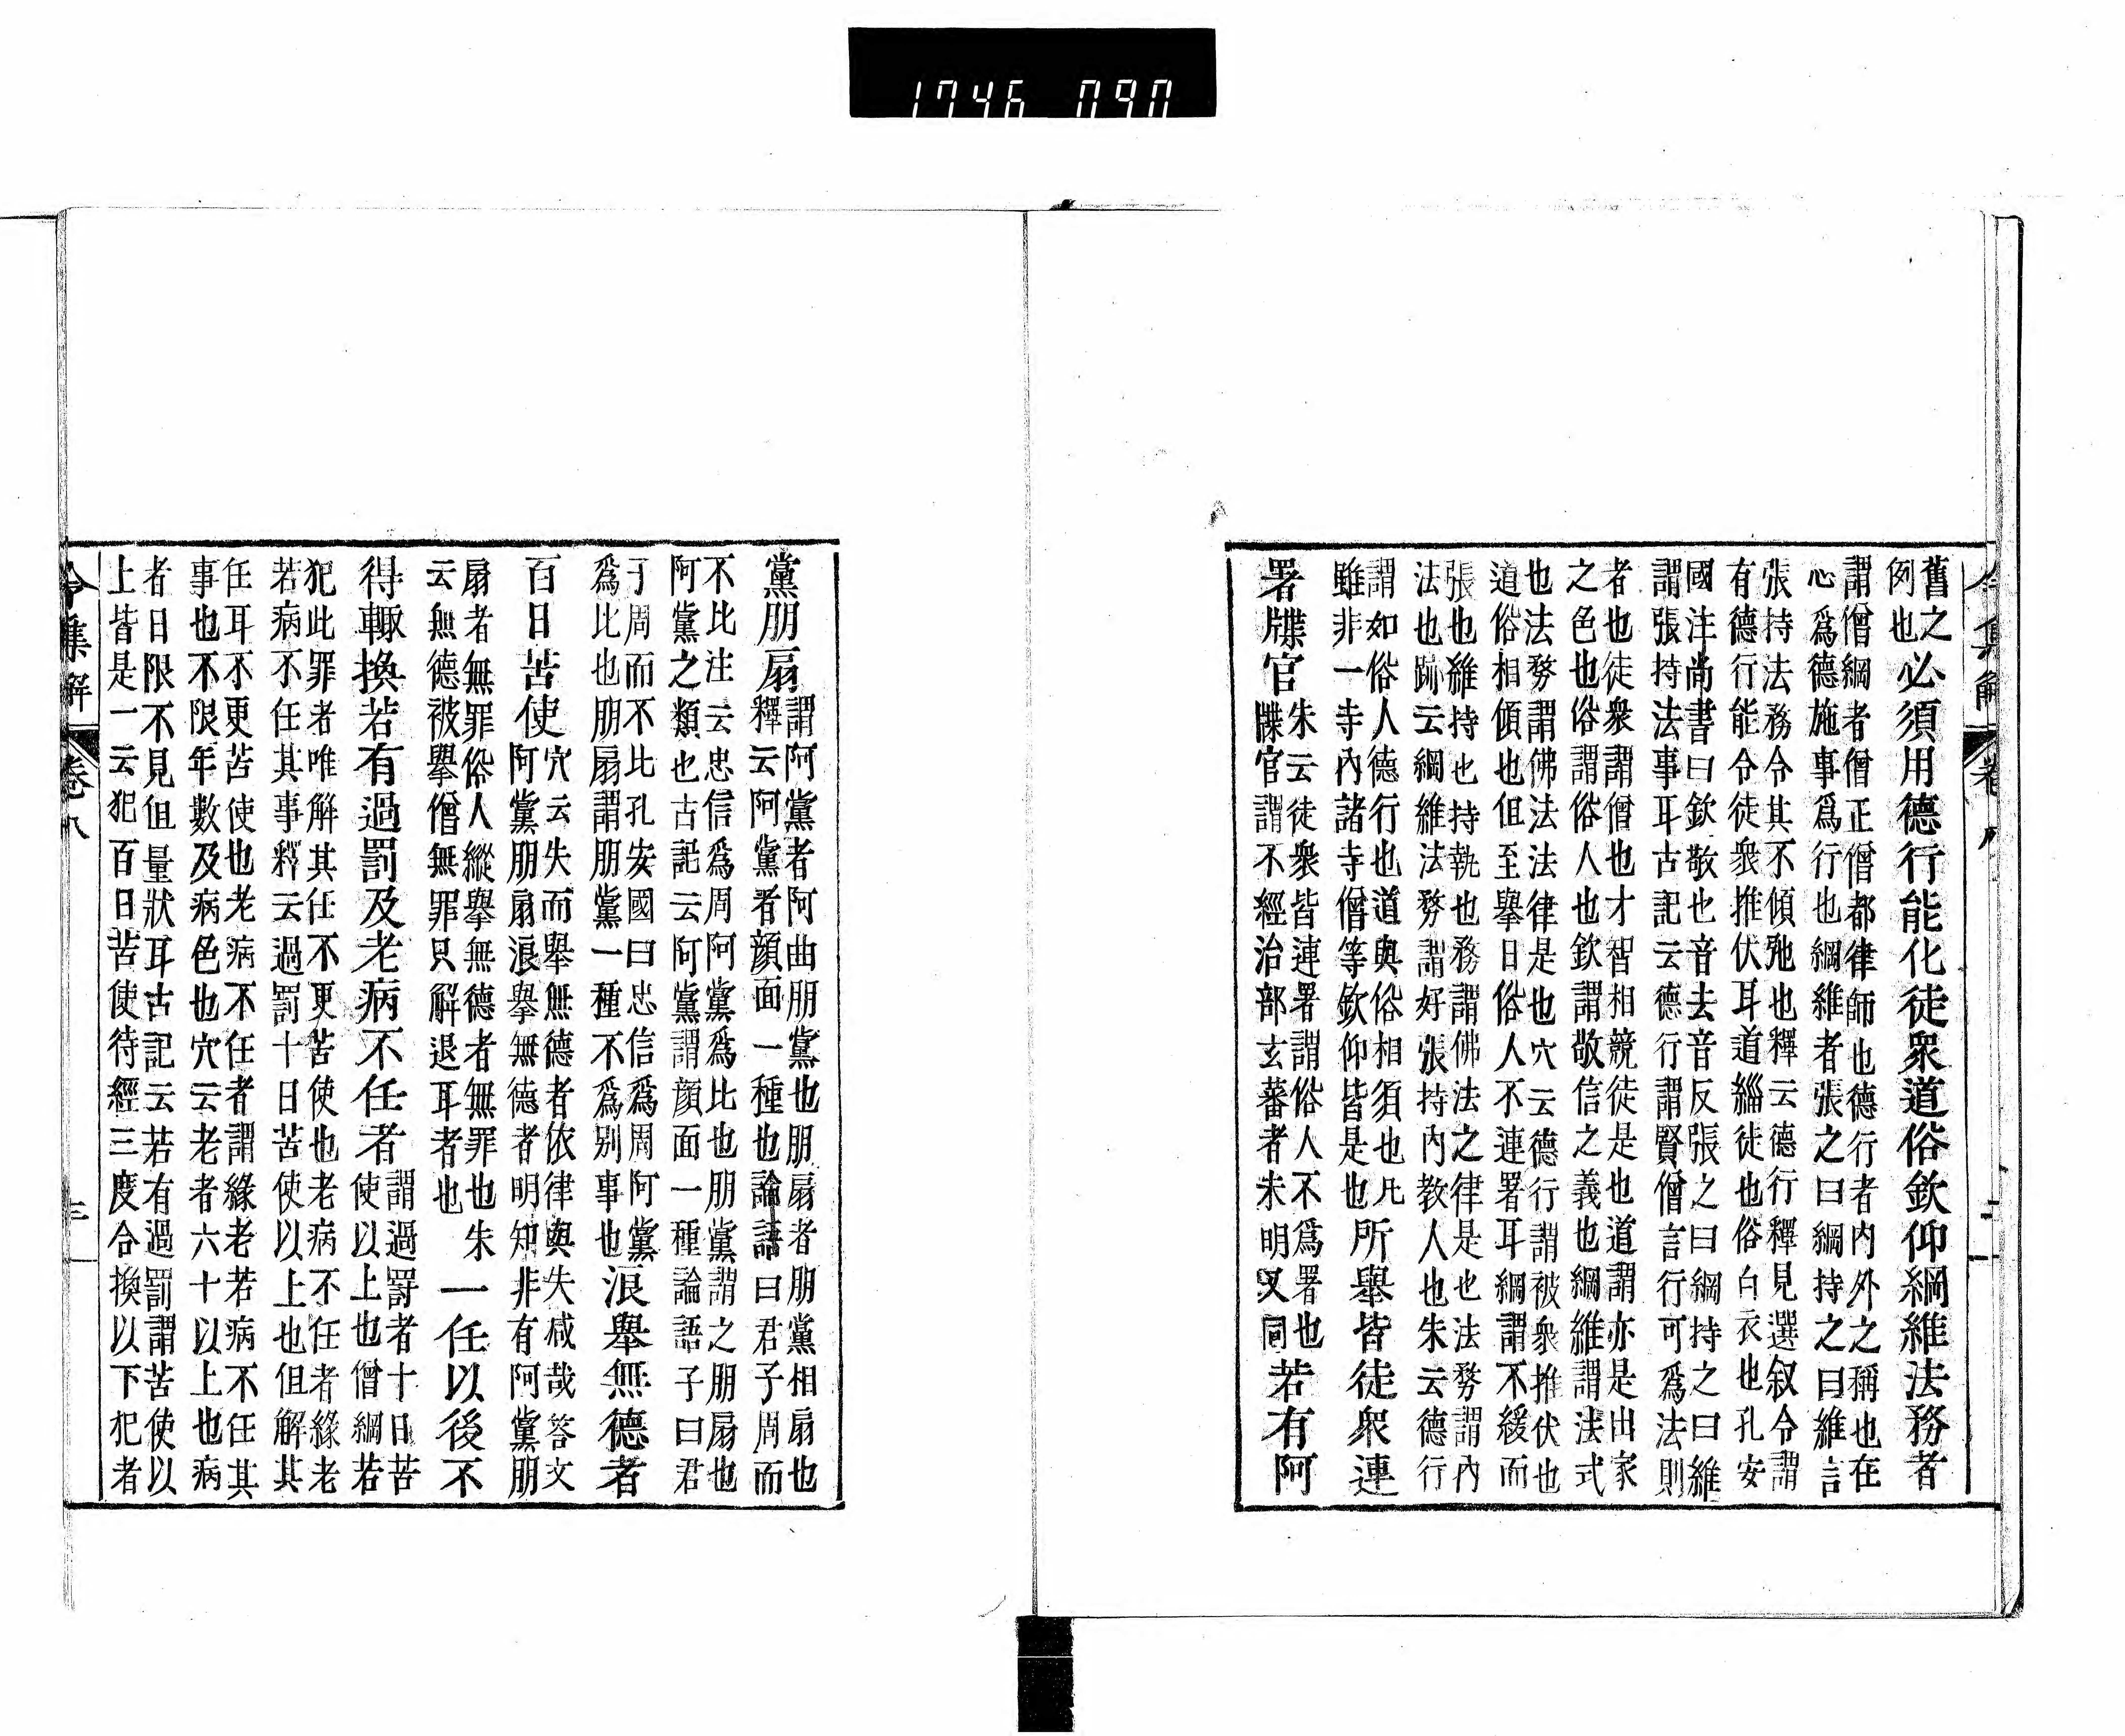 1746 090
令集解 卷八 二
舊之
例也
必須用德行能化徒衆道俗欽仰綱維法務者
謂僧綱者僧正僧都律師也德行者内外之稱也在
心爲德施事爲行也綱維者張之曰綱持之曰維言
張持法務令其不傾弛也釋云德行釋見選叙令謂
有德行能令徒衆推伏耳道緇徒也俗白衣也孔安
國注尚書曰欽敬也音去音反張之曰綱持之曰維
謂張持法事耳古記云德行謂賢僧言行可爲法則
者也徒衆謂僧也才智相競徒是也道謂亦是出家
之色也俗謂俗人也欽謂敬信之義也綱維謂法式
也法務謂佛法法律是也穴云德行謂被衆推伏也
道俗相傾也但至擧日俗人不連署耳綱謂不緩而
張也維持也持執也務謂佛法之律是也法務謂内
法也跡云綱維法務謂好張持内教人也朱云德行
謂如俗人德行也道與俗相須也凡
雖非一寺内諸寺僧等欽仰皆是也
所擧皆徒衆連
署牒官
朱云徒衆皆連署謂俗人不爲署也
牒官謂不經治部玄蕃者朱明又同
若有阿
黨朋扇
謂阿黨者阿曲朋黨也朋扇者朋黨相扇也
釋云阿黨者顏面一種也論語曰君子周而
不比注云忠信爲周阿黨爲比也朋黨謂之朋扇也
阿黨之類也古記云阿黨謂顏面一種論語子曰君
子周而不比孔安國曰忠信爲周阿黨
爲比也朋扇謂朋黨一種不爲別事也
浪擧無德者
百日苦使
穴云失而擧無德者依律與失减哉答文
阿黨朋扇浪擧無德者明知非有阿黨朋
扇者無罪俗人縱擧無德者無罪也朱
云無德被擧僧無罪只解退耳者也
一任以後不
得輙換若有過罰及老病不任者
謂過罸者十日苦
使以上也僧綱若
犯此罪者唯解其任不更苦使也老病不任者緣老
若病不任其事釋云過罰十日苦使以上也但解其
任耳不更苦使也老病不任者謂緣老若病不任其
事也不限年數及病色也穴云老者六十以上也病
者日限不見但量狀耳古記云若有過罰謂苦使以
上皆是一云犯百日苦使待經三度合換以下犯者
令集解 卷八 三